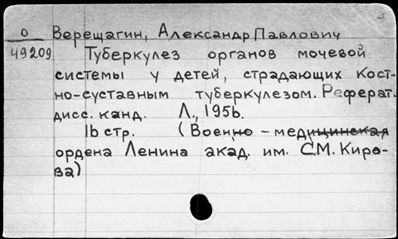 О Верещагин, Александр Павлович
49209 Туберкулез органов мочевой
системы у детей, страдающих кост-
но-суставным туберкулезом. Реферат.
дисс. канд. Л., 1956.
16 стр. (Военно - медицинская
ордена Ленина акад. им. С.М. Киро-
ва)